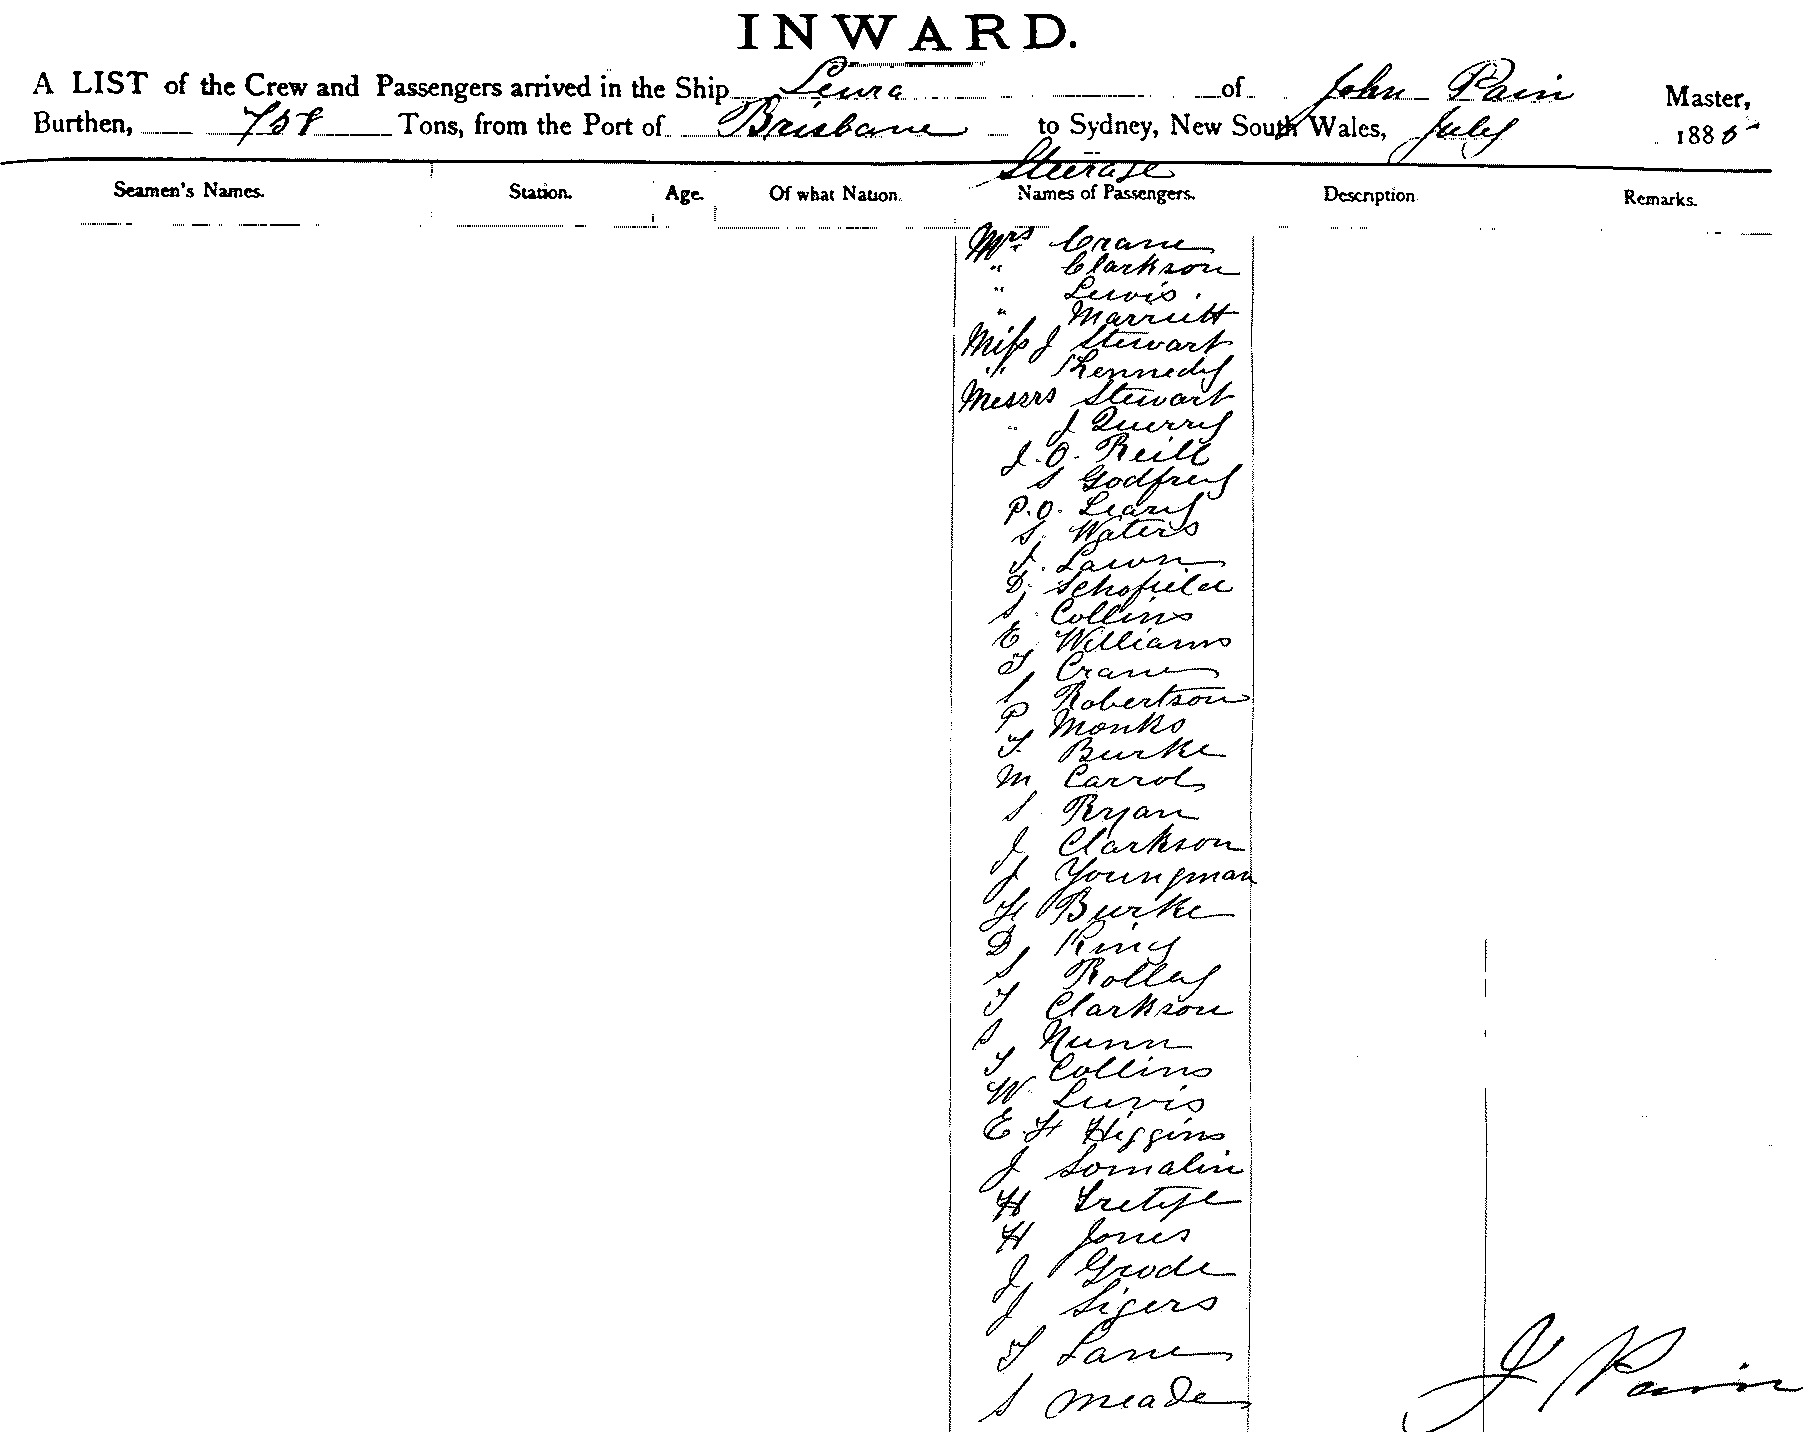 INWARD.
A LIST of the Crew and Passengers arrived in the Ship Leura of John Pain Master,
Burthen, Tons, from the Port of Brisbane to Sydney, New South Wales, July 1885
Steerage
Seamen's Names. Station. Age. Of what Nation. Names of Passengers. Description Remarks.
Mrs Crane
" Clarkson
" Lewis.
" Marriett
Miss J Stewart
" Kennedy
Messrs Stewart
" J Querry
J. O. Reill
S Godfrey
P. O. Leary
S. Waters
J. Lawn
D. Schofield
S Collins
E Williams
T Crane
Robertson
P Monks
T. Burke
M Carrol
S Ryan
J Clarkson
J Youngman
H Burke
D King
S Rolley
T Clarkson
S Nunn
T Collins
W Lewis
E. H Higgins
J Somalin
H
H Jones
J Grode
J Sigers
T Lane
S Meade
J Pain